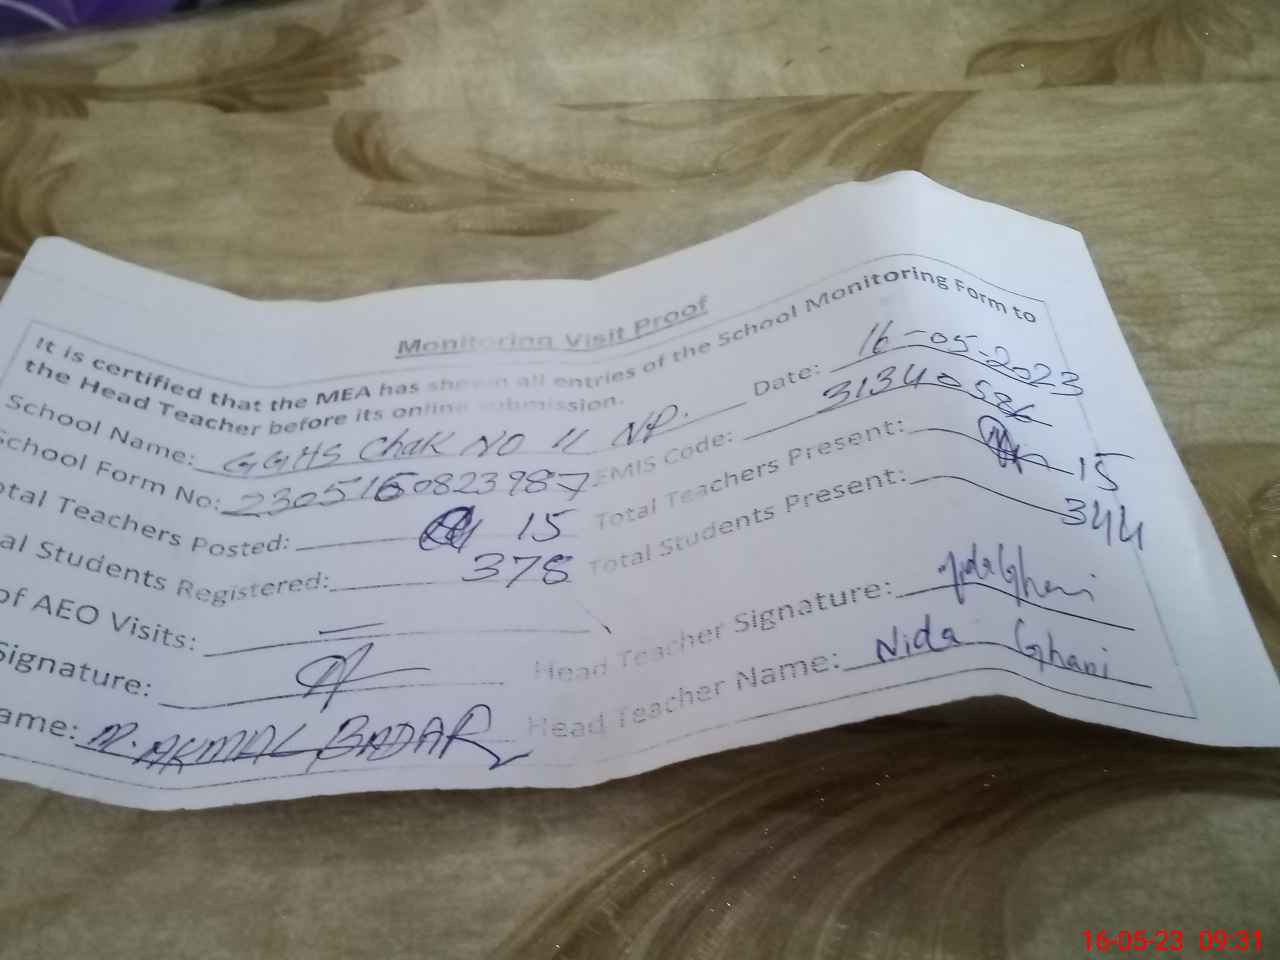 Monitoring Visit Proof
It is certified that the MEA has shown all entries of the School Monitoring Form to
the Head Teacher before its online submission.
School Name: GGHS Chak NO 11 NP. Date: 16-05-2023
School Form No: 2305160823987 EMIS Code: 31340586
otal Teachers Posted: 15 Total Teachers Present: 15
al Students Registered: 378 Total Students Present: 344
of AEO Visits:
Signature: Head Teacher Signature: Nida Ghani
ame: M. AKMAL BADAR Head Teacher Name: Nida Ghani
16-05-23 09:31